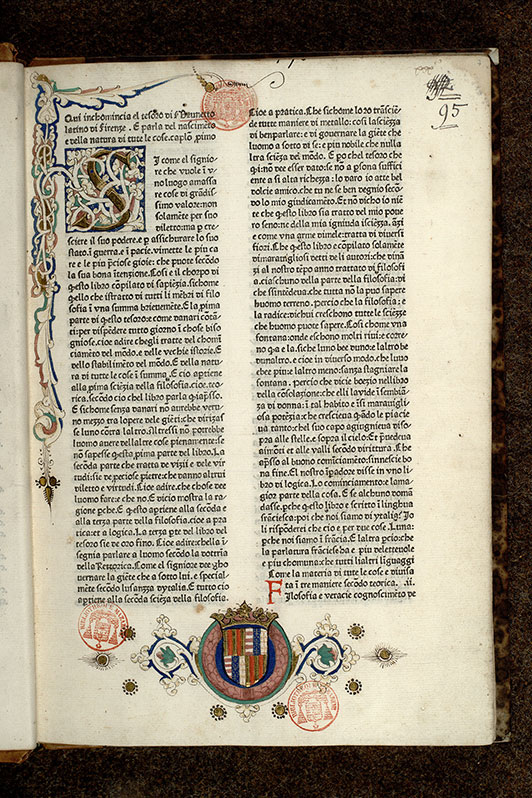 95
Qui inchomincia el tesoro di S Brunetto
latino di firenze. E parla del nascimẽto
e della natura di tute le cose.caplo p̱imo
SI come el signio-
re che vuole ĩ v-
no luogo amassa
re cose di grãdis-
simo valore:non
solamẽte per suo
diletto:ma ꝑ cre-
sciere il suo podere.e ꝑ assichurare lo suo
stato.ĩ guerra.e ĩ pacie.vimette le piu ca
re e le piu p̱ciose gioie: che puote secõdo
la sua bona ĩtenzione. Cosi e il chorpo di
q̃sto libro cõpilato di sapiẽzia. sichome
q̃llo che istratto di tutti li mẽbri di filo
sofia ĩ vna summa brieuemẽte. E la p̱ima
parte di q̃sto tesoro:e come danari cõtã-
ti:per dispẽdere tutto giorno ĩ chose biso
gniose.cioe adire chegli tratte del chom̃
ciamẽto del mõdo. e delle vechie istorie. E
dello stabilimẽto del mõdo. E della natu-
ra di tutte le cose ĩ summa. E cio aptiene
alla p̱ima sciẽzia della filosofia.cioe.teo-
rica.secõdo cio chel libro parla q̱iapsso.
E sichome senza danari nõ aurebbe veru-
no mezzo tra lopere dele giẽti: che dirizas
se luno cõtra laltro. Altresi nõ potrebbe
luomo auere dellaltre cose pienamente: se
nõ sapesse q̃sta p̱ima parte del libro. La
secõda parte che tratta de vizii e dele vir
tudi: sie de p̱eciose pietre: che dãno altrui
diletto e virtudi. Cioe adire.che chose dee
luomo fare:e che no. E dicio mostra la ra
gione ꝑche. E q̃sto aptiene alla secõda e
alla terza parte della filosofia.cioe a pra
tica:et a logica. La terza ꝑte del libro del
tesoro sie de oro fino. Cioe adire:chella ĩ
segnia parlare a luomo secõdo la dottria
della Rettorica. Come el signiore dee gho
uernare la giẽte che a sotto lui. e spezial-
mẽte secõdo lusanza dytalia. E tutto cio
aptiene alla secõda sciẽza della filosofia.
Cioe a pratica. Che sichome loro trãsciẽ-
de tutte maniere di metallo: cosi la sciẽza
di benparlare: e di gouernare la giẽte che
luomo a sotto di se: e piu nobile che nulla
ltra sciẽza del mõdo. E po chel tesoro che
q̱i:nõ dee esser dato: se nõ a ꝑsona suffici
ente a si alta richezza: lo daro io atte bel
dolcie amico.che tu ne se ben degnio secõ-
do lo mio giudicamẽto. Et nõ dicho io niẽ
te che q̃sto libro sia tratto del mio poue
ro seno:ne della mia igniuda isciẽza: ãzi
e come vna arme dimele:tratta di diuersi
fiori. Che q̃sto libro e cõpilato solamẽte
dimarauigliosi detti de li autori:che dinã
zi al nostro tẽpo anno trattato di filosofi
a.ciaschuno della parte della filosofia:di
che sĩtẽdeua:che tutta nõ la puo sapere
huomo terreno. percio che la filosofia: e
la radice:dichui creschono tutte le sciẽze
che huomo puote sapere. Cosi chome vna
fontana:onde eschono molti riui:e corro-
no q̱a e la.siche luno bee duno:e laltro be
dunaltro. e cioe in diuerso modo.che luno
che piu:e laltro meno: sanza stagniare la
fontana. percio che dicie boezio nellibro
della cõsolazione:che elli lavide ĩ sembiã-
za di donna: ĩ tal habito e ĩsi marauiglio
osa potẽzia:e che cresciẽua quãdo le piacie
ua tanto:chel suo capo agiugnieua diso
pra alle stelle.e sopra il cielo. Et p̱uedeua
aimõti et alle valli secõdo dirittura. Che
ap̱sso al buono comĩciamẽto:sinnescie bo
na fine. Et nostro ĩpadore disse in vno li
bro di logica. Lo cominciamento:e lamag
gior parte della cosa. E se alchuno domã
dasse.ꝑche q̃sto libro e scritto ĩ lingua
frãciescha:poi che noi siamo di ytalia. Io
li rispõderei che cio e per due cose. Luna:
ꝑche noi siamo ĩ frãcia. E laltra pcio:che
la parlatura frãciescha e piu deletteuole
e piu chomuna:che tutti lialtri linguaggi
Come la materia di tutte le cose e diuisa
ta ĩ tre maniere secõdo teorica. .ii.
Filosofia e veracie cognoscimẽto de